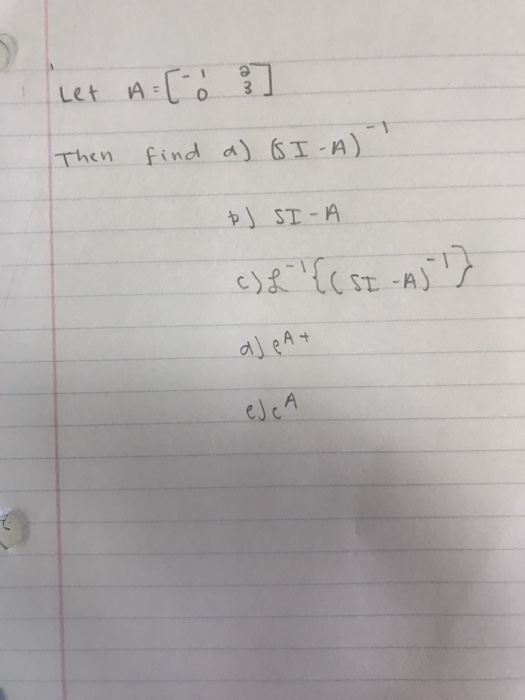 Let A = [ -1 2
0 3 ]
Then find a) (SI - A)^-1
b) SI - A
c) ℒ^-1{(SI - A)^-1}
d) e^At
e) e^A